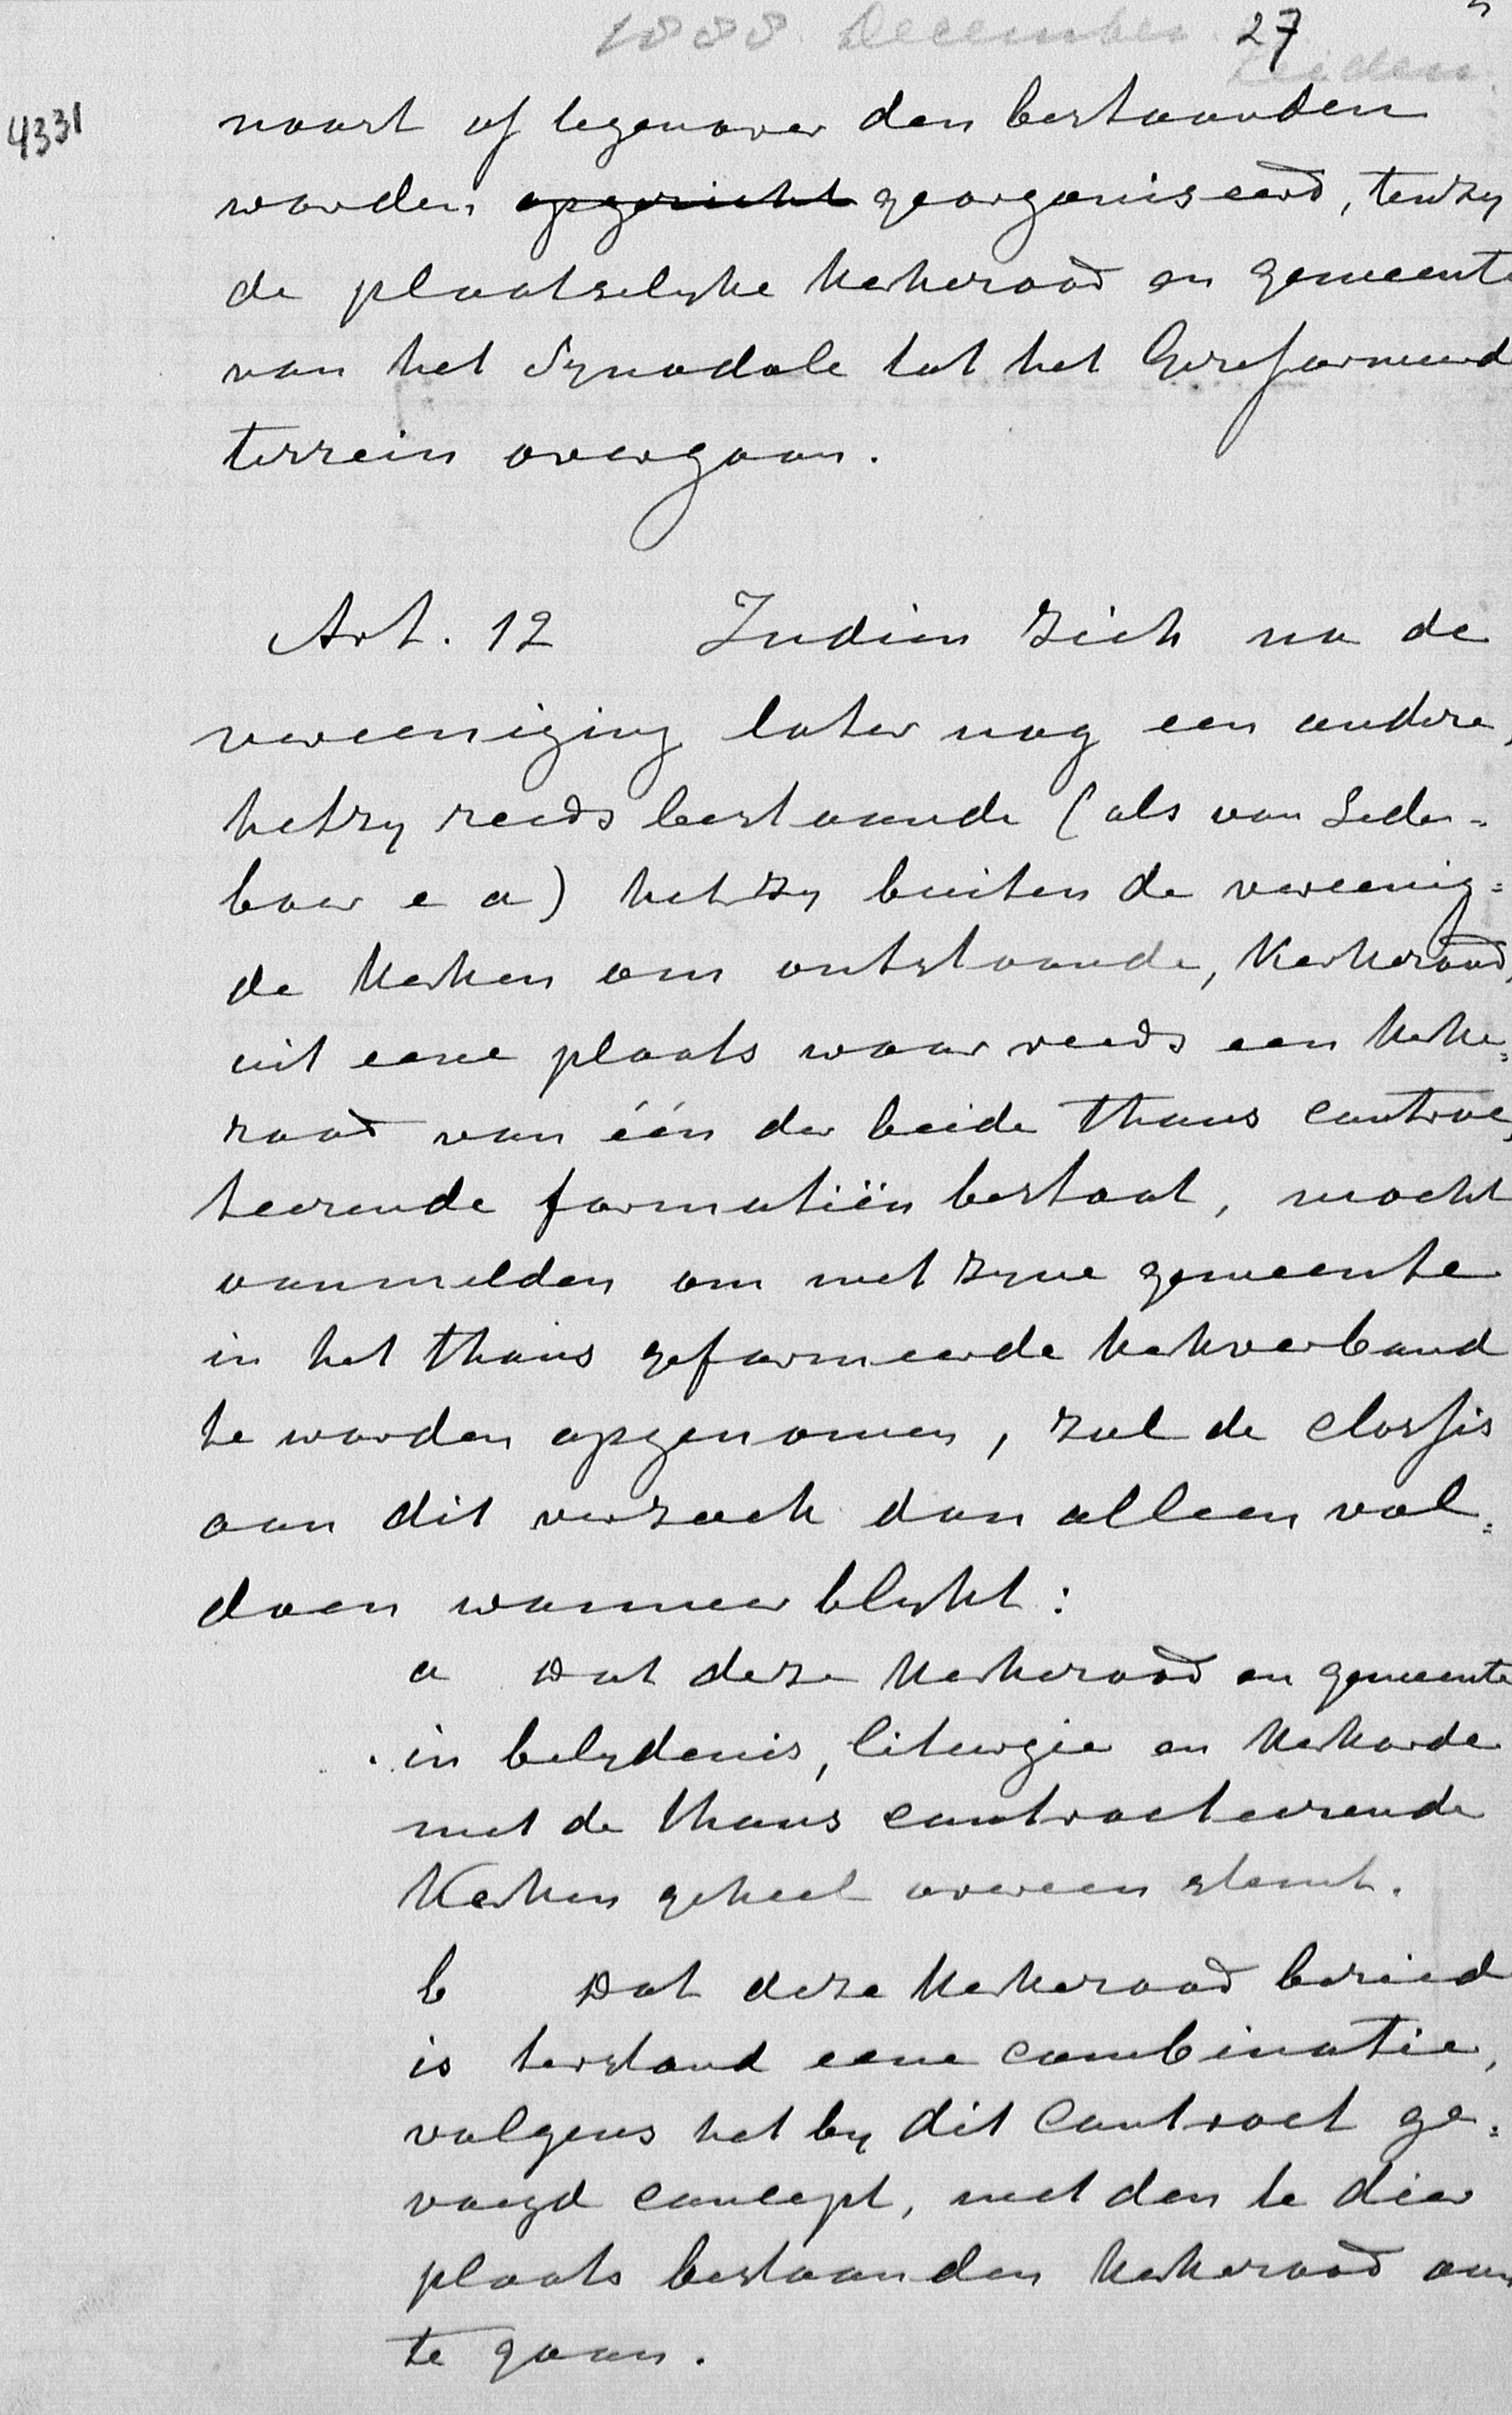 1888 December 27
Leiden
4331
naast of tegenover den bestaanden
worden ~~opgericht~~ georganiseerd, tenzy
de plaatselyke Kerkeraad en gemeente
van het Synodale tot het Gereformeerd
terrein overgaan.
Art. 12 Indien zich na de
vereeniging later nog een andere,
hetzy reeds bestaande (als van Lede=
boer e a) hetzy buiten de vereenig=
de Kerken om ontstaande, Kerkeraad,
uit eene plaats waar reeds een Kerke=
raad van één der beide thans contrac=
teerende formatiën bestaat, mocht
aanmelden om met zyne gemeente
in het thans geformeerde Kerkverband
te worden opgenomen, zal de classis
aan dit verzoek dan alleen vol=
doen wanneer blykt:
a Dat deze Kerkeraad en gemeente
in belydenis, liturgie en Kerkorde
met de thans contracteerende
Kerken geheel overeen stemt.
b Dat deze Kerkeraad bereid
is terstond eene combinatie,
volgens het by dit Contract ge=
voegd concept, met den te dier
plaats bestaanden Kerkeraad aan
te gaan.